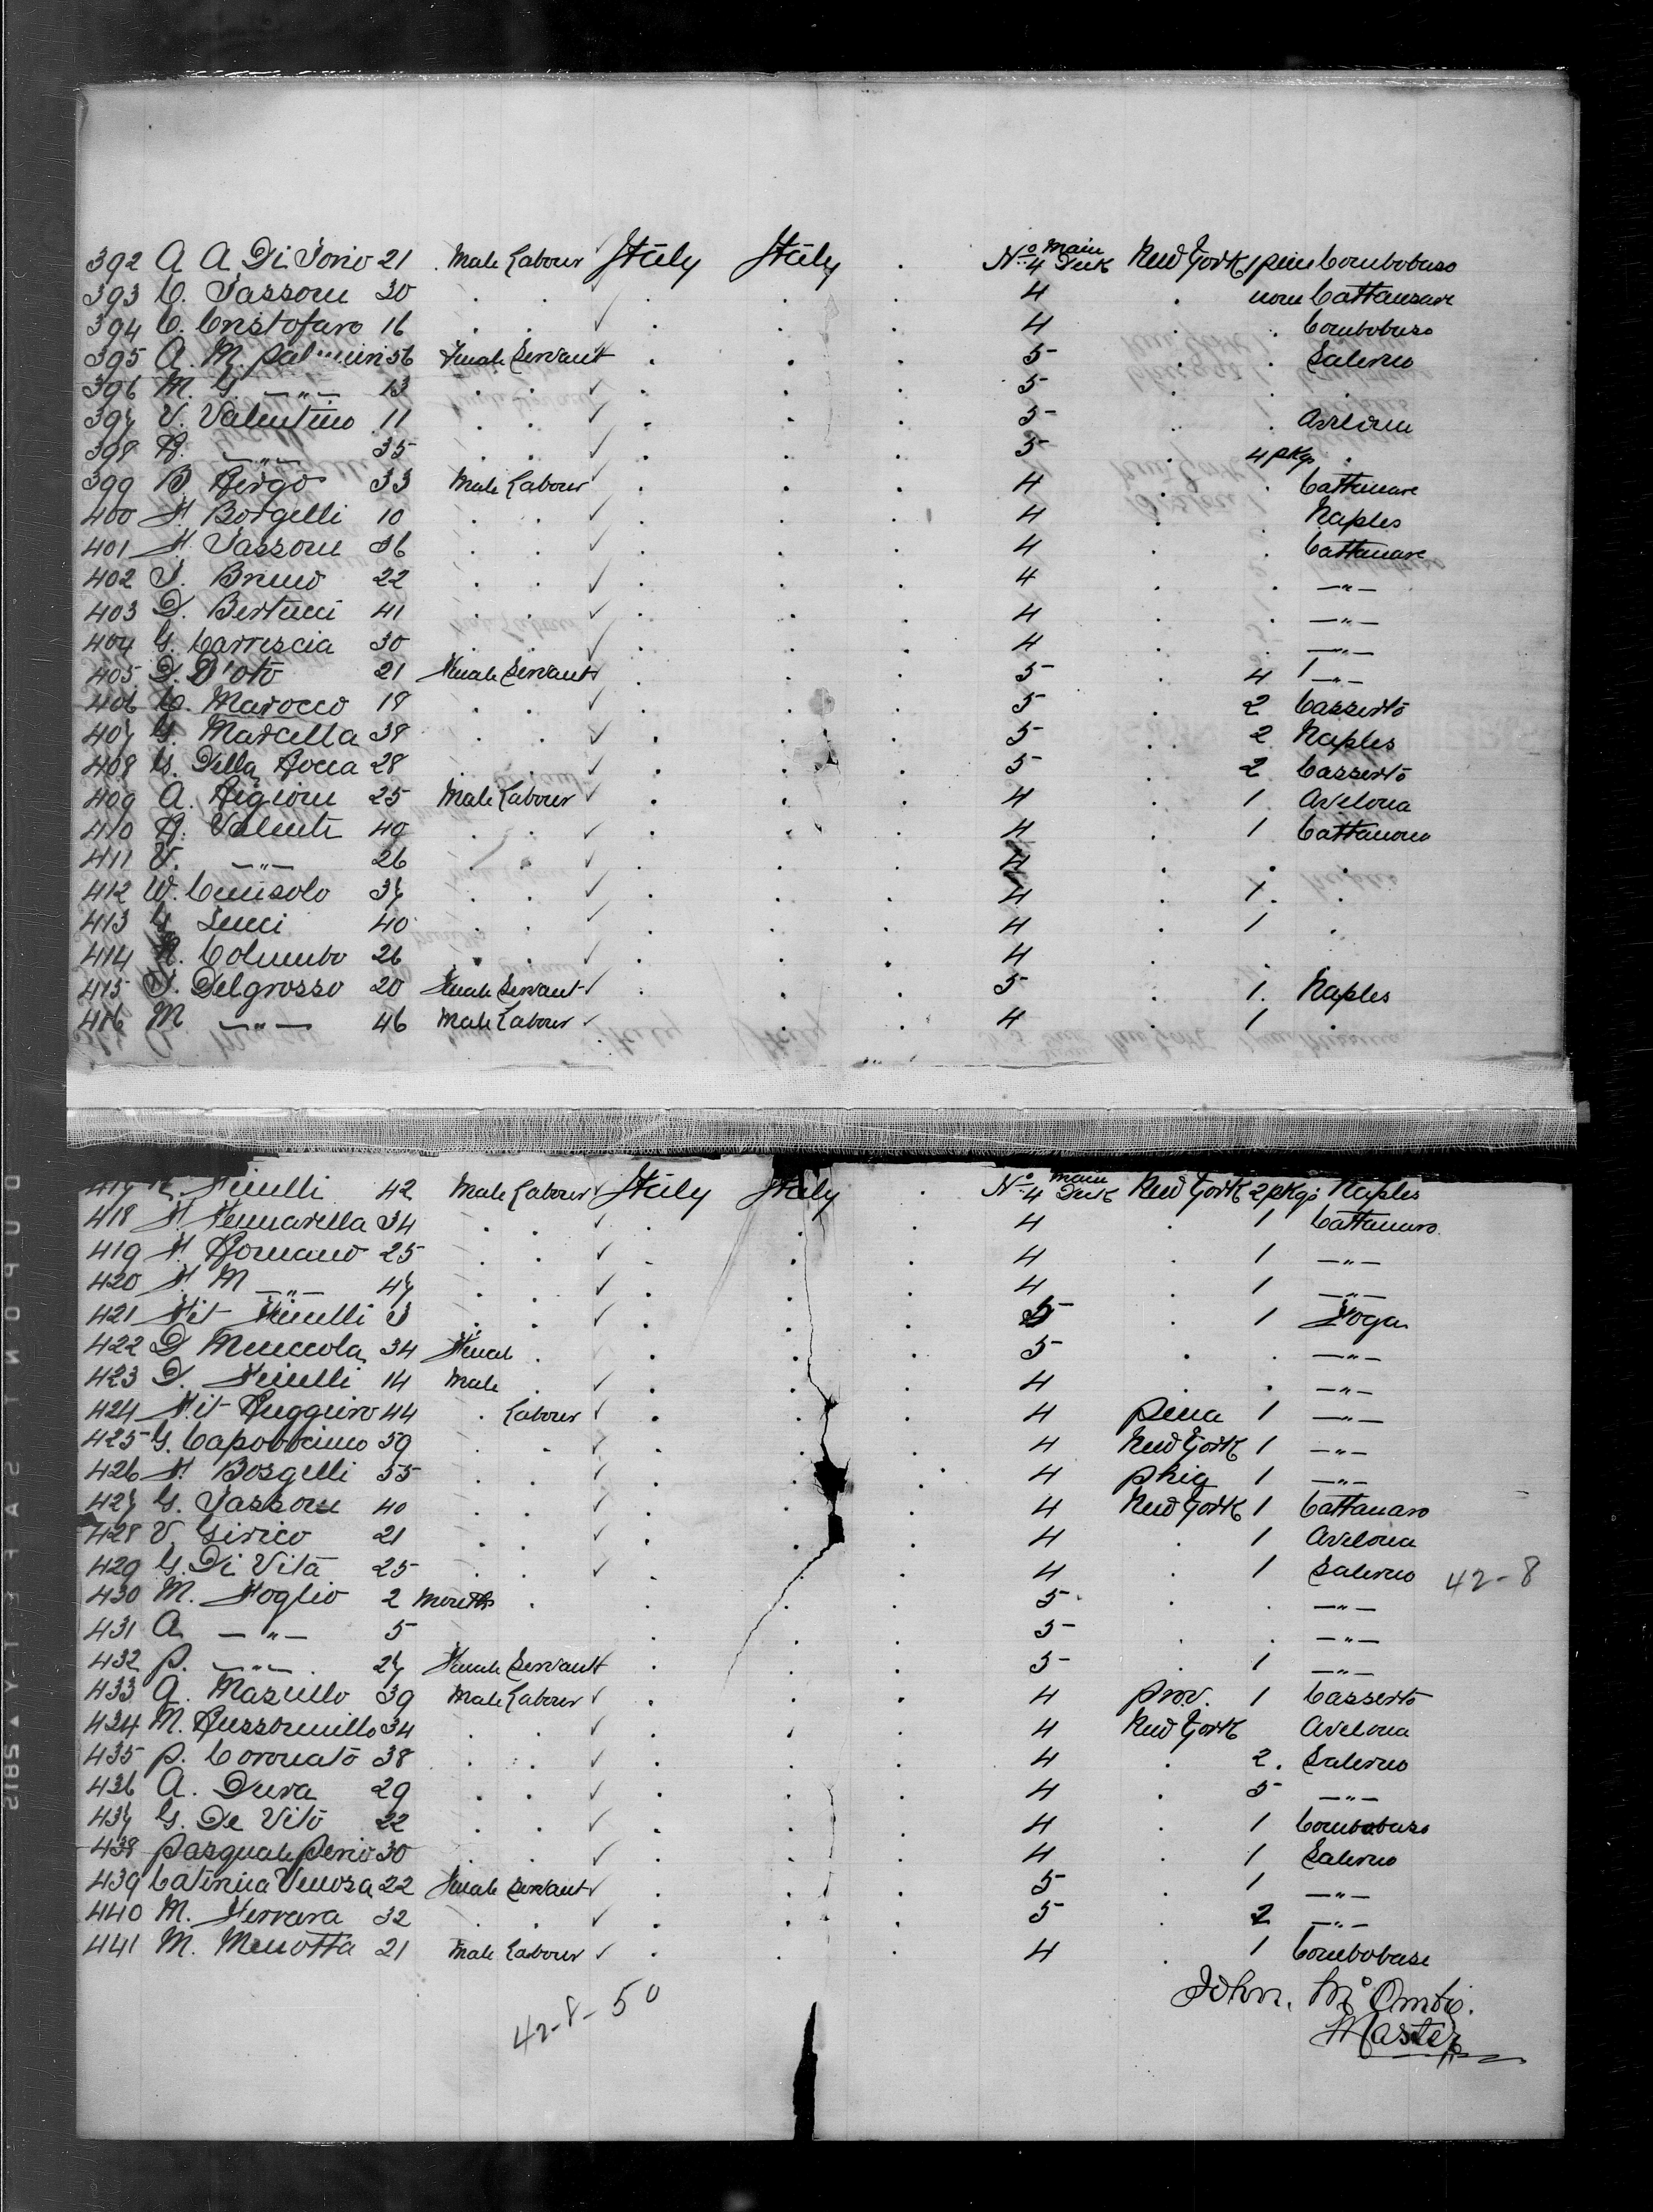 392 A A Di Iorio 21 . Male Labour ✓ Italy Italy . No. 4 Main Deck New York 1 piece Combobaso
393 C. Sassone 30 . . ✓ . . . 4 . none Cattanzare
394 C. Cristofaro 16 . . ✓ . . . 4 . . Combobaso
395 A. M. 56 Female Servant . . . 5 . . Salerno
396 M. G. —"— 13 . . ✓ . . . 5 . . .
397 V. Valentino 11 . . ✓ . . . 5 . . Avelona
398 R. —"— 35 . . ✓ . . . 5 . 4 pkgs .
399 B 33 Male Labour ✓ . . . 4 . . Cattanare
400 F. Borgelli 10 . . ✓ . . . 4 . . Naples
401 F. Sassone 36 . . ✓ . . . 4 . . Cattanare
402 S. Bruno 22 . . ✓ . . . 4 . . —"—
403 D. Bertucci 41 . . ✓ . . . 4 . . —"—
404 G. Carrescia 30 . . ✓ . . . 4 . . —"—
405 D. D'oto 21 Female Servant ✓ . . . 5 . 4 1 —"—
406 C. Marocco 19 . . ✓ . . . 5 . 2 Casserto
407 G. Marcella 39 . . ✓ . . . 5 . . 2 Naples
408 G. Della Rocca 28 . . ✓ . . . 5 . 2 Casserto
409 A. Rigione 25 Male Labour ✓ . . . 4 . 1 Avelona
410 R. Valente 49 . . ✓ . . . 4 . 1 Cattanona
411 V. —"— 26 . . ✓ . . . 4 . . .
412 W. 37 . . ✓ . . . 4 . 1 . .
413 G. 40 . . ✓ . . . 4 . 1 .
414 N. Columbo 26 . . ✓ . . . 4 . . .
415 V. Delgrosso 20 Female Servant ✓ . . . 5 . 1. Naples
416 M —"— 46 Male Labour ✓ . . . 4 . 1 .
417 42 Male Labour ✓ Italy Italy . No. 4 Main Deck New York 2 pkgs Naples
418 F. Fennarella 34 . . ✓ . . . 4 . 1 Cattanaro
419 F. Romano 25 . . ✓ . . . 4 . 1 —"—
420 F. M —"— 47 . . ✓ . . . 4 . 1 —"—
421 Fit Finelli 3 . . ✓ . . . 5 . 1 Foga
422 D Menccola 34 Female . . . . 5 . . —"—
423 D. Finelli 14 Male . ✓ . . . 4 . . —"—
424 Fit Ruggiero 44 . Labour ✓ . . . 4 Penna 1 —"—
425 G. 59 . . ✓ . . . 4 New York 1 —"—
426 F. Bosgelli 55 . . ✓ . . . 4 Phig 1 —"—
427 G. Sassone 40 . . ✓ . . . 4 New York 1 Cattanaro
428 V. Girico 21 . . ✓ . . . 4 . 1 Avelona
429 G. Di Vita 25 . . ✓ . . . 4 . 1 Salerno 42-8
430 M. Foglio 2 months . . . . 5 . . —"—
431 A —"— 5 . . . 5 . . —"—
432 P. —"— 27 Female Servant . . . 5 . 1 —"—
433 G. Masullo 39 Male Labour ✓ . . . 4 Prov. 1 Casserto
424 M. Russomillo 34 . . ✓ . . . 4 New York Avelona
435 P. Coronato 38 . . ✓ . . . 4 . 2. Salerno
436 A. Dura 29 . . ✓ . . . 4 . 5 —"—
437 G. De Vito 22 . . ✓ . . . 4 . 1 Combobaso
438 Pasquale Perio 30 . . ✓ . . . 4 . 1 Salerno
439 Catinia Venosa 22 Female Servant ✓ . . . 5 . 1 —"—
440 M. Ferrara 32 . . ✓ . . . 5 . 2 —"—
441 M. Menotta 21 Male Labour ✓ . . . 4 . 1 Combobase
John.
Master
42-8-50